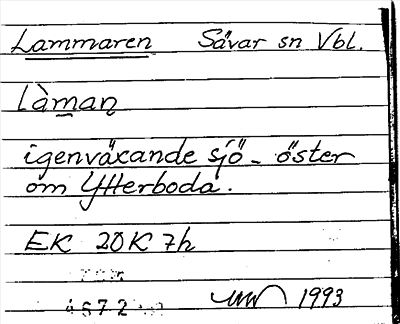 Lammaren Sävar sn Vbl.
làman
igenväxande sjö - öster
om Ytterboda.
EK 20K 7h
4572
1993